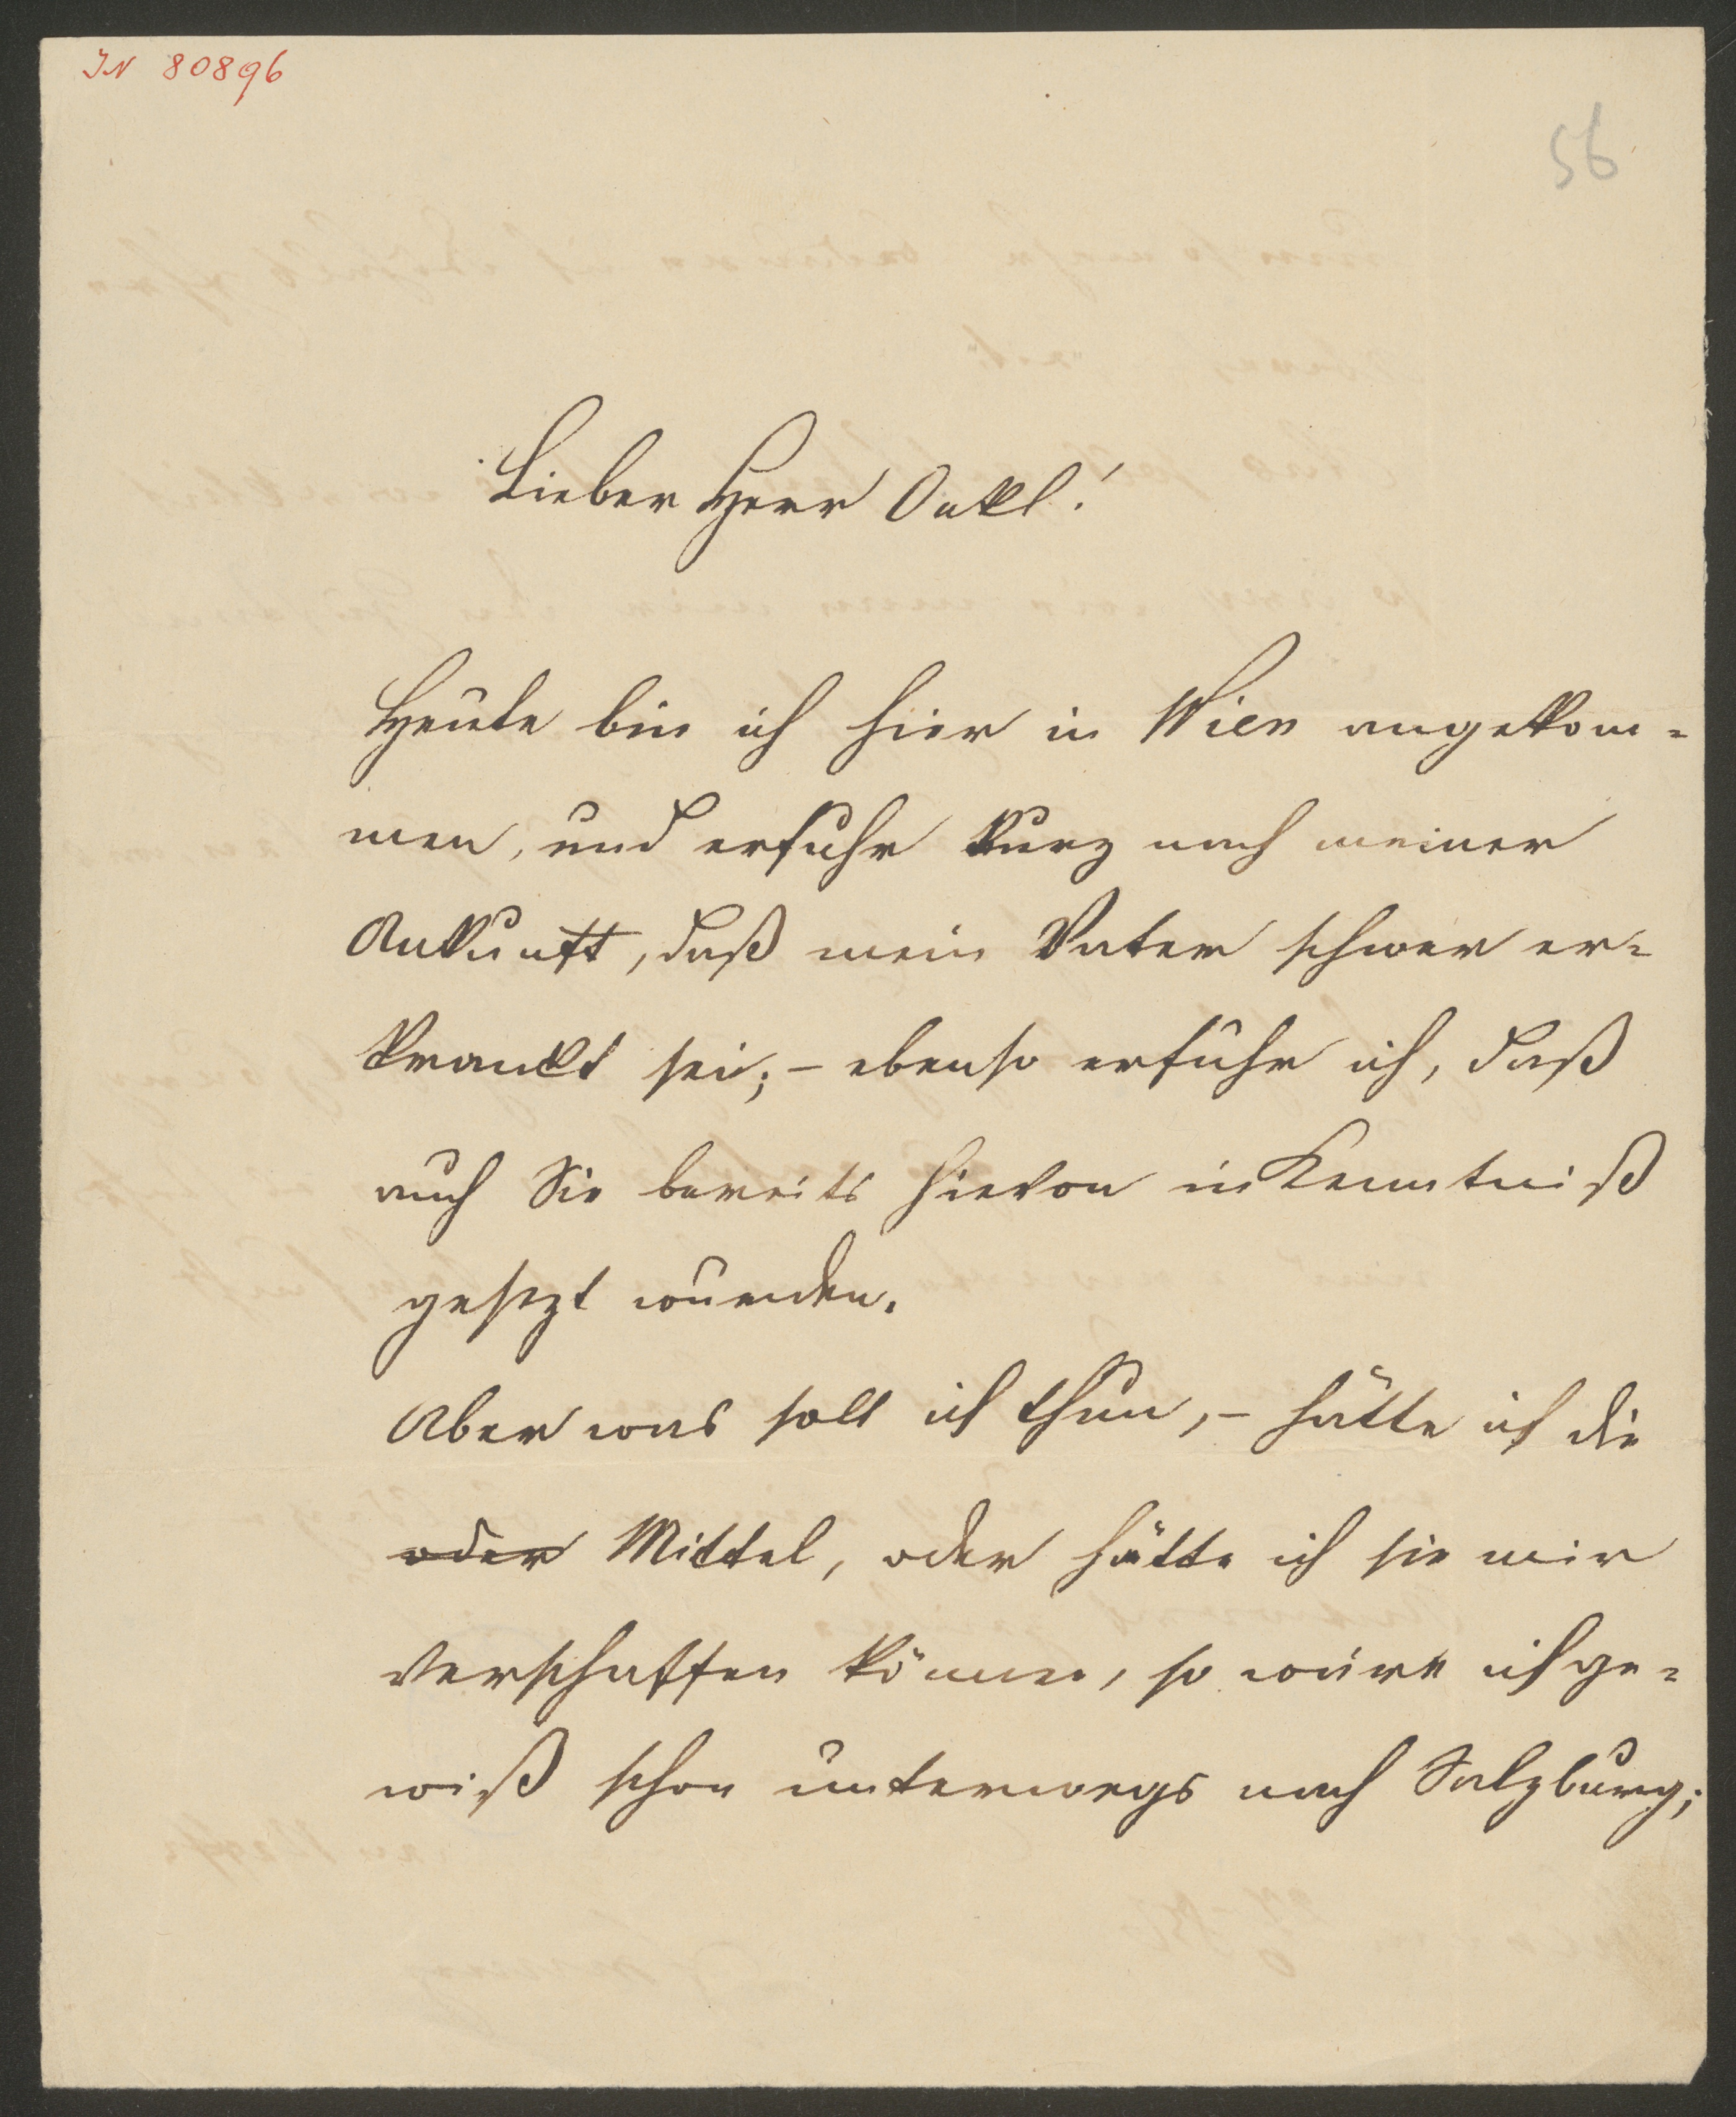 IN 80896
56
Lieber Herr Onkl!
Heute bin ich hier in Wien angekom=
men, und erfuhr kurz nach meiner
Ankunft, daß mein Vater schwer er=
krankt sei; – ebenso erfuhr ich, daß
auch Sie bereits hievon in Kenntniß
gesezt wurden.
Aber was soll ich thun, – hätte ich die
oder Mittel, oder hätte ich sie mir
verschaffen können, so wäre ich ge=
wiß schon unterwegs nach Salzburg;